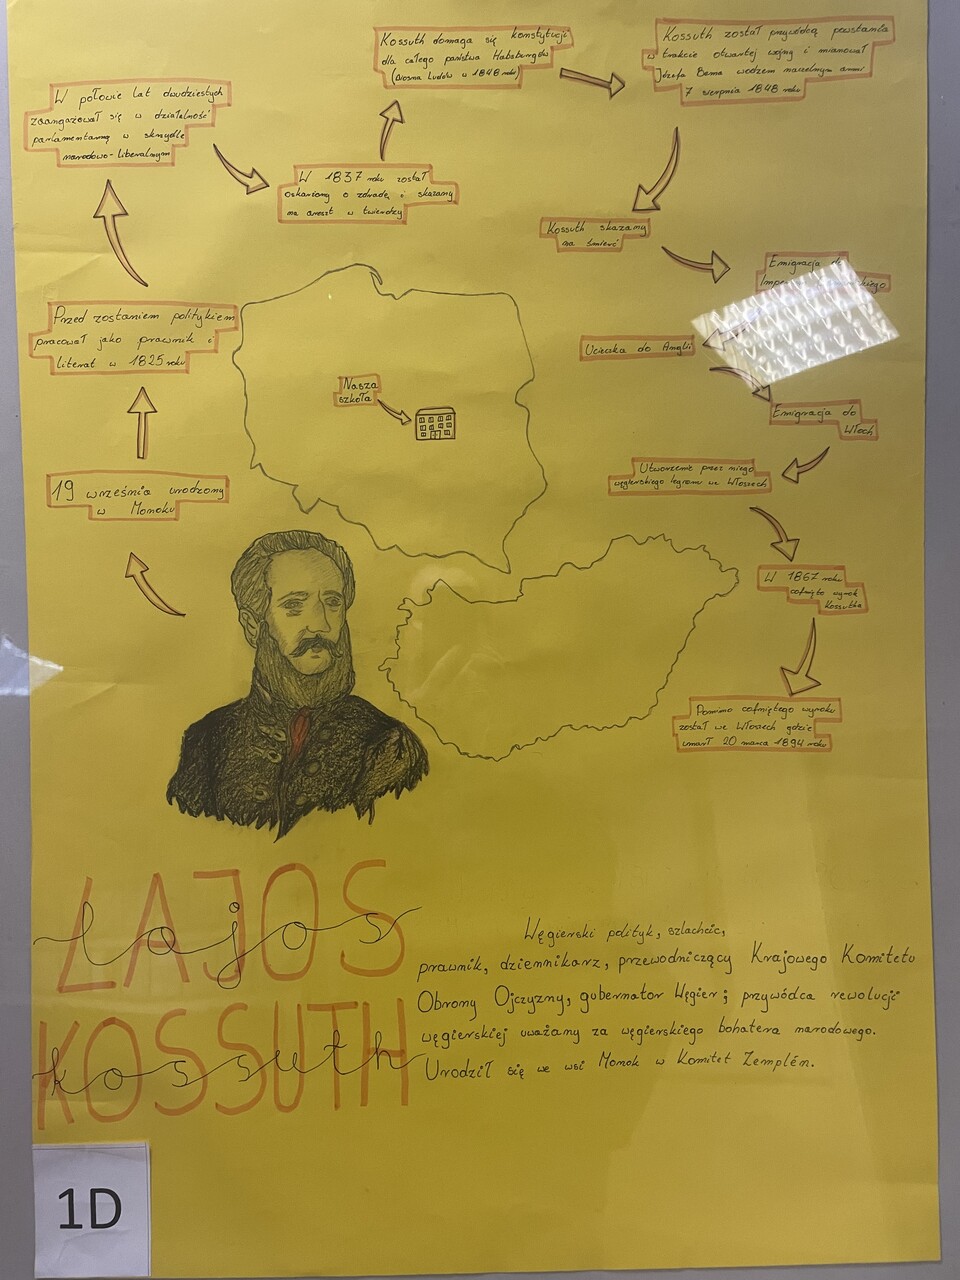 19 września urodzony
w Monoku
Przed zostaniem politykiem
pracował jako prawnik i
literat w 1825 roku
W połowie lat dwudziestych
zaangażował się w działalność
parlamentarną w skrzydle
narodowo-liberalnym
W 1837 roku został
oskarżony o zdradę i skazany
na areszt w twierdzy
Kossuth domaga się konstytucji
dla całego państwa Habsburgów
(Wiosna Ludów w 1848 roku)
Kossuth został przywódcą powstania
w trakcie otwartej wojny i mianował
Józefa Bema wodzem naczelnym armii
7 sierpnia 1848 roku
Kossuth skazany
na śmierć
Emigracja do
Ucieczka do Anglii
Emigracja do
Włoch
Utworzenie przez niego
węgierskiego legionu we Włoszech
W 1867 roku
cofnięto wyrok
Kossutha
Pomimo cofniętego wyroku
został we Włoszech gdzie
umarł 20 marca 1894 roku
Nasza
szkoła
LAJOS
lajos
KOSSUTH
kossuth
Węgierski polityk, szlachcic,
prawnik, dziennikarz, przewodniczący Krajowego Komitetu
Obrony Ojczyzny, gubernator Węgier; przywódca rewolucji
węgierskiej uważany za węgierskiego bohatera narodowego.
Urodził się we wsi Monok w Komitet Zemplén.
1D